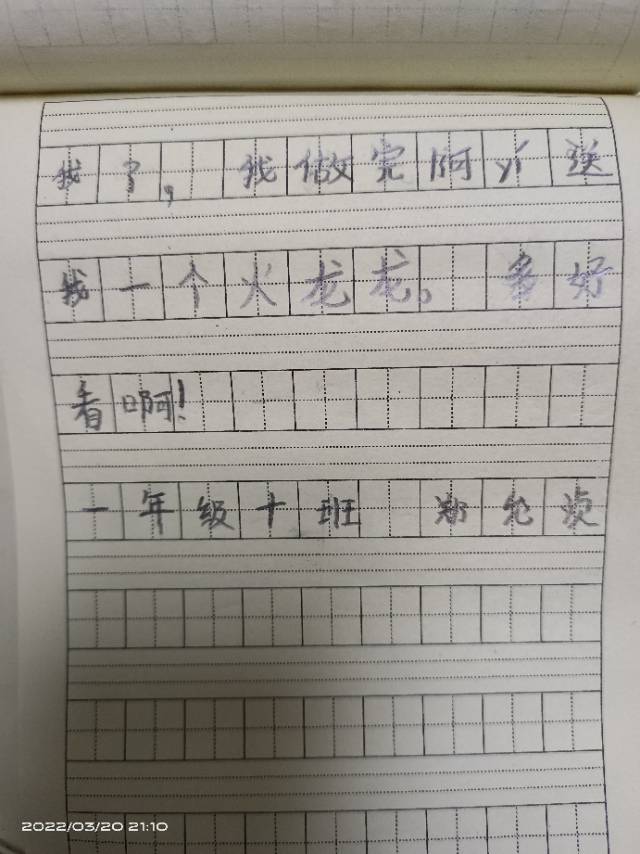 我了，我做完阿丫送
我一个火龙龙。多好
看啊！
一年级十班 郑允浈
2022/03/20 21:10